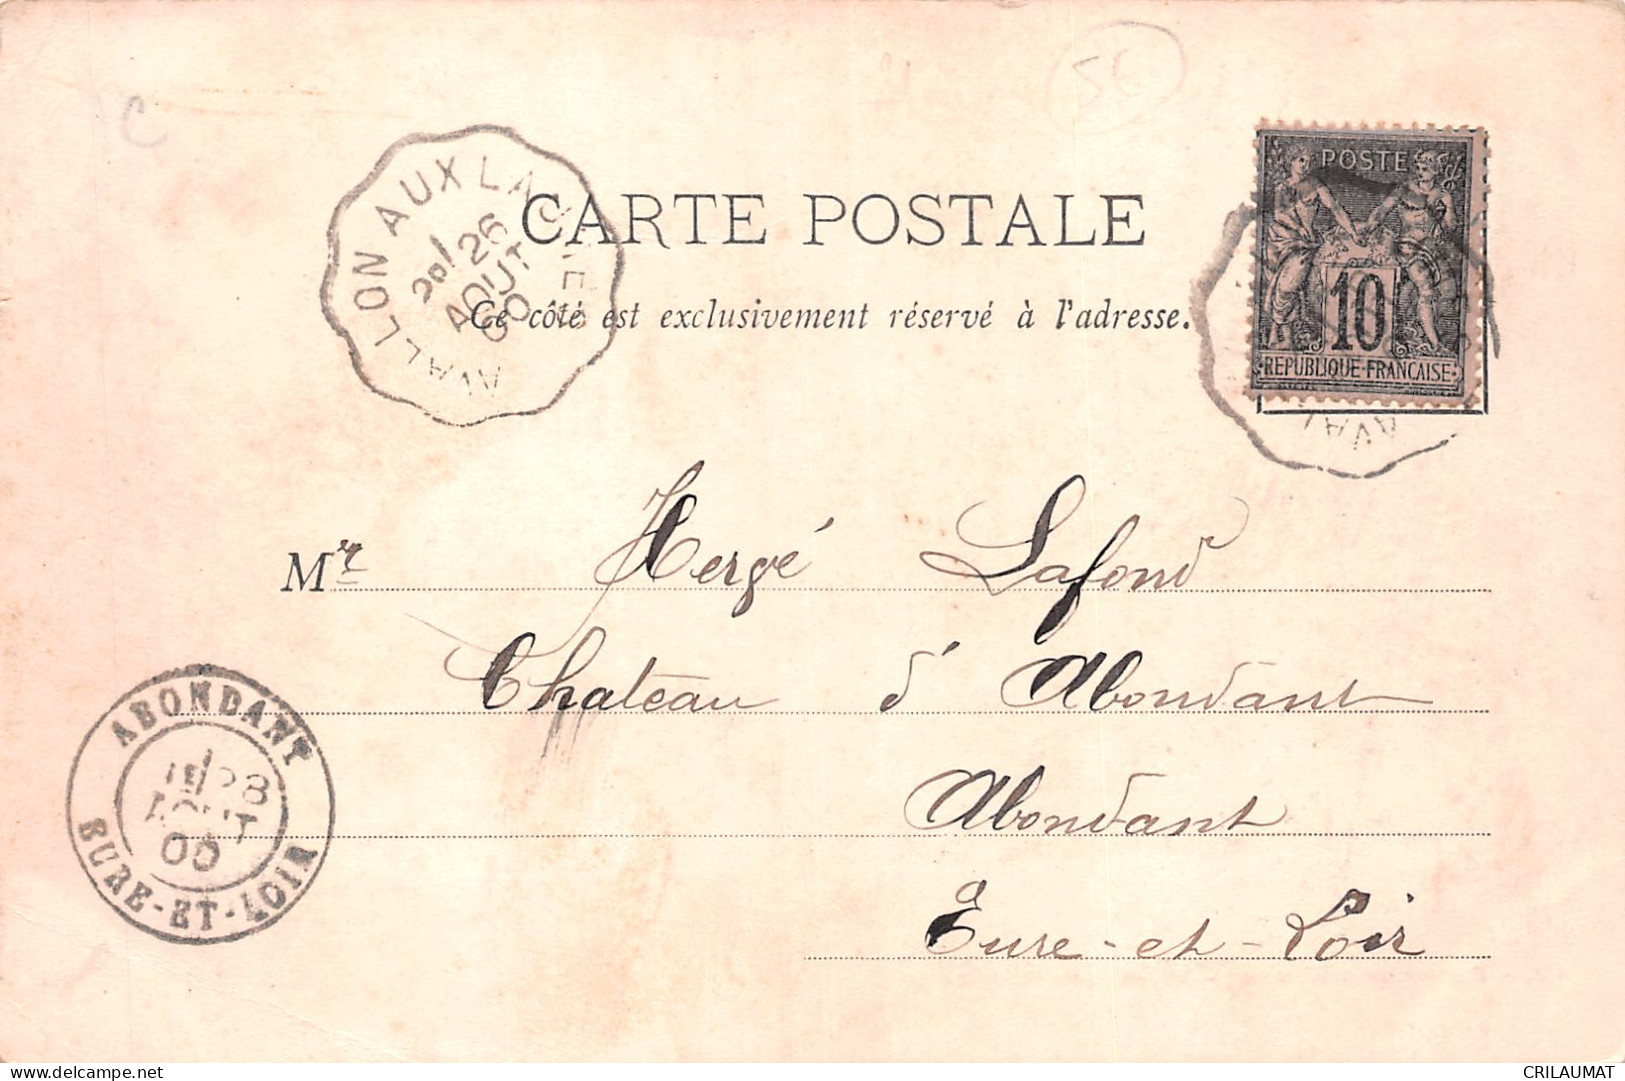 C
5€
POSTE
10
REPUBLIQUE·FRANCAISE
AVALLON AUX LAUMES
26
AOUT
00
AVAL
CARTE POSTALE
Ce côté est exclusivement réservé à l'adresse.
Mr Hergé Lafond
Chateau d'Abondant
Abondant
Eure-et-Loir
ABONDANT
28
AOUT
00
EURE-ET-LOIR
delcampe.net
CRILAUMAT